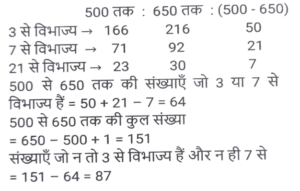 500 तक : 650 तक : (500 - 650)
3 से विभाज्य → 166 216 50
7 से विभाज्य → 71 92 21
21 से विभाज्य → 23 30 7
500 से 650 तक की संख्याएँ जो 3 या 7 से
विभाज्य हैं = 50 + 21 – 7 = 64
500 से 650 तक की कुल संख्या
= 650 – 500 + 1 = 151
संख्याएँ जो न तो 3 से विभाज्य हैं और न ही 7 से
= 151 – 64 = 87